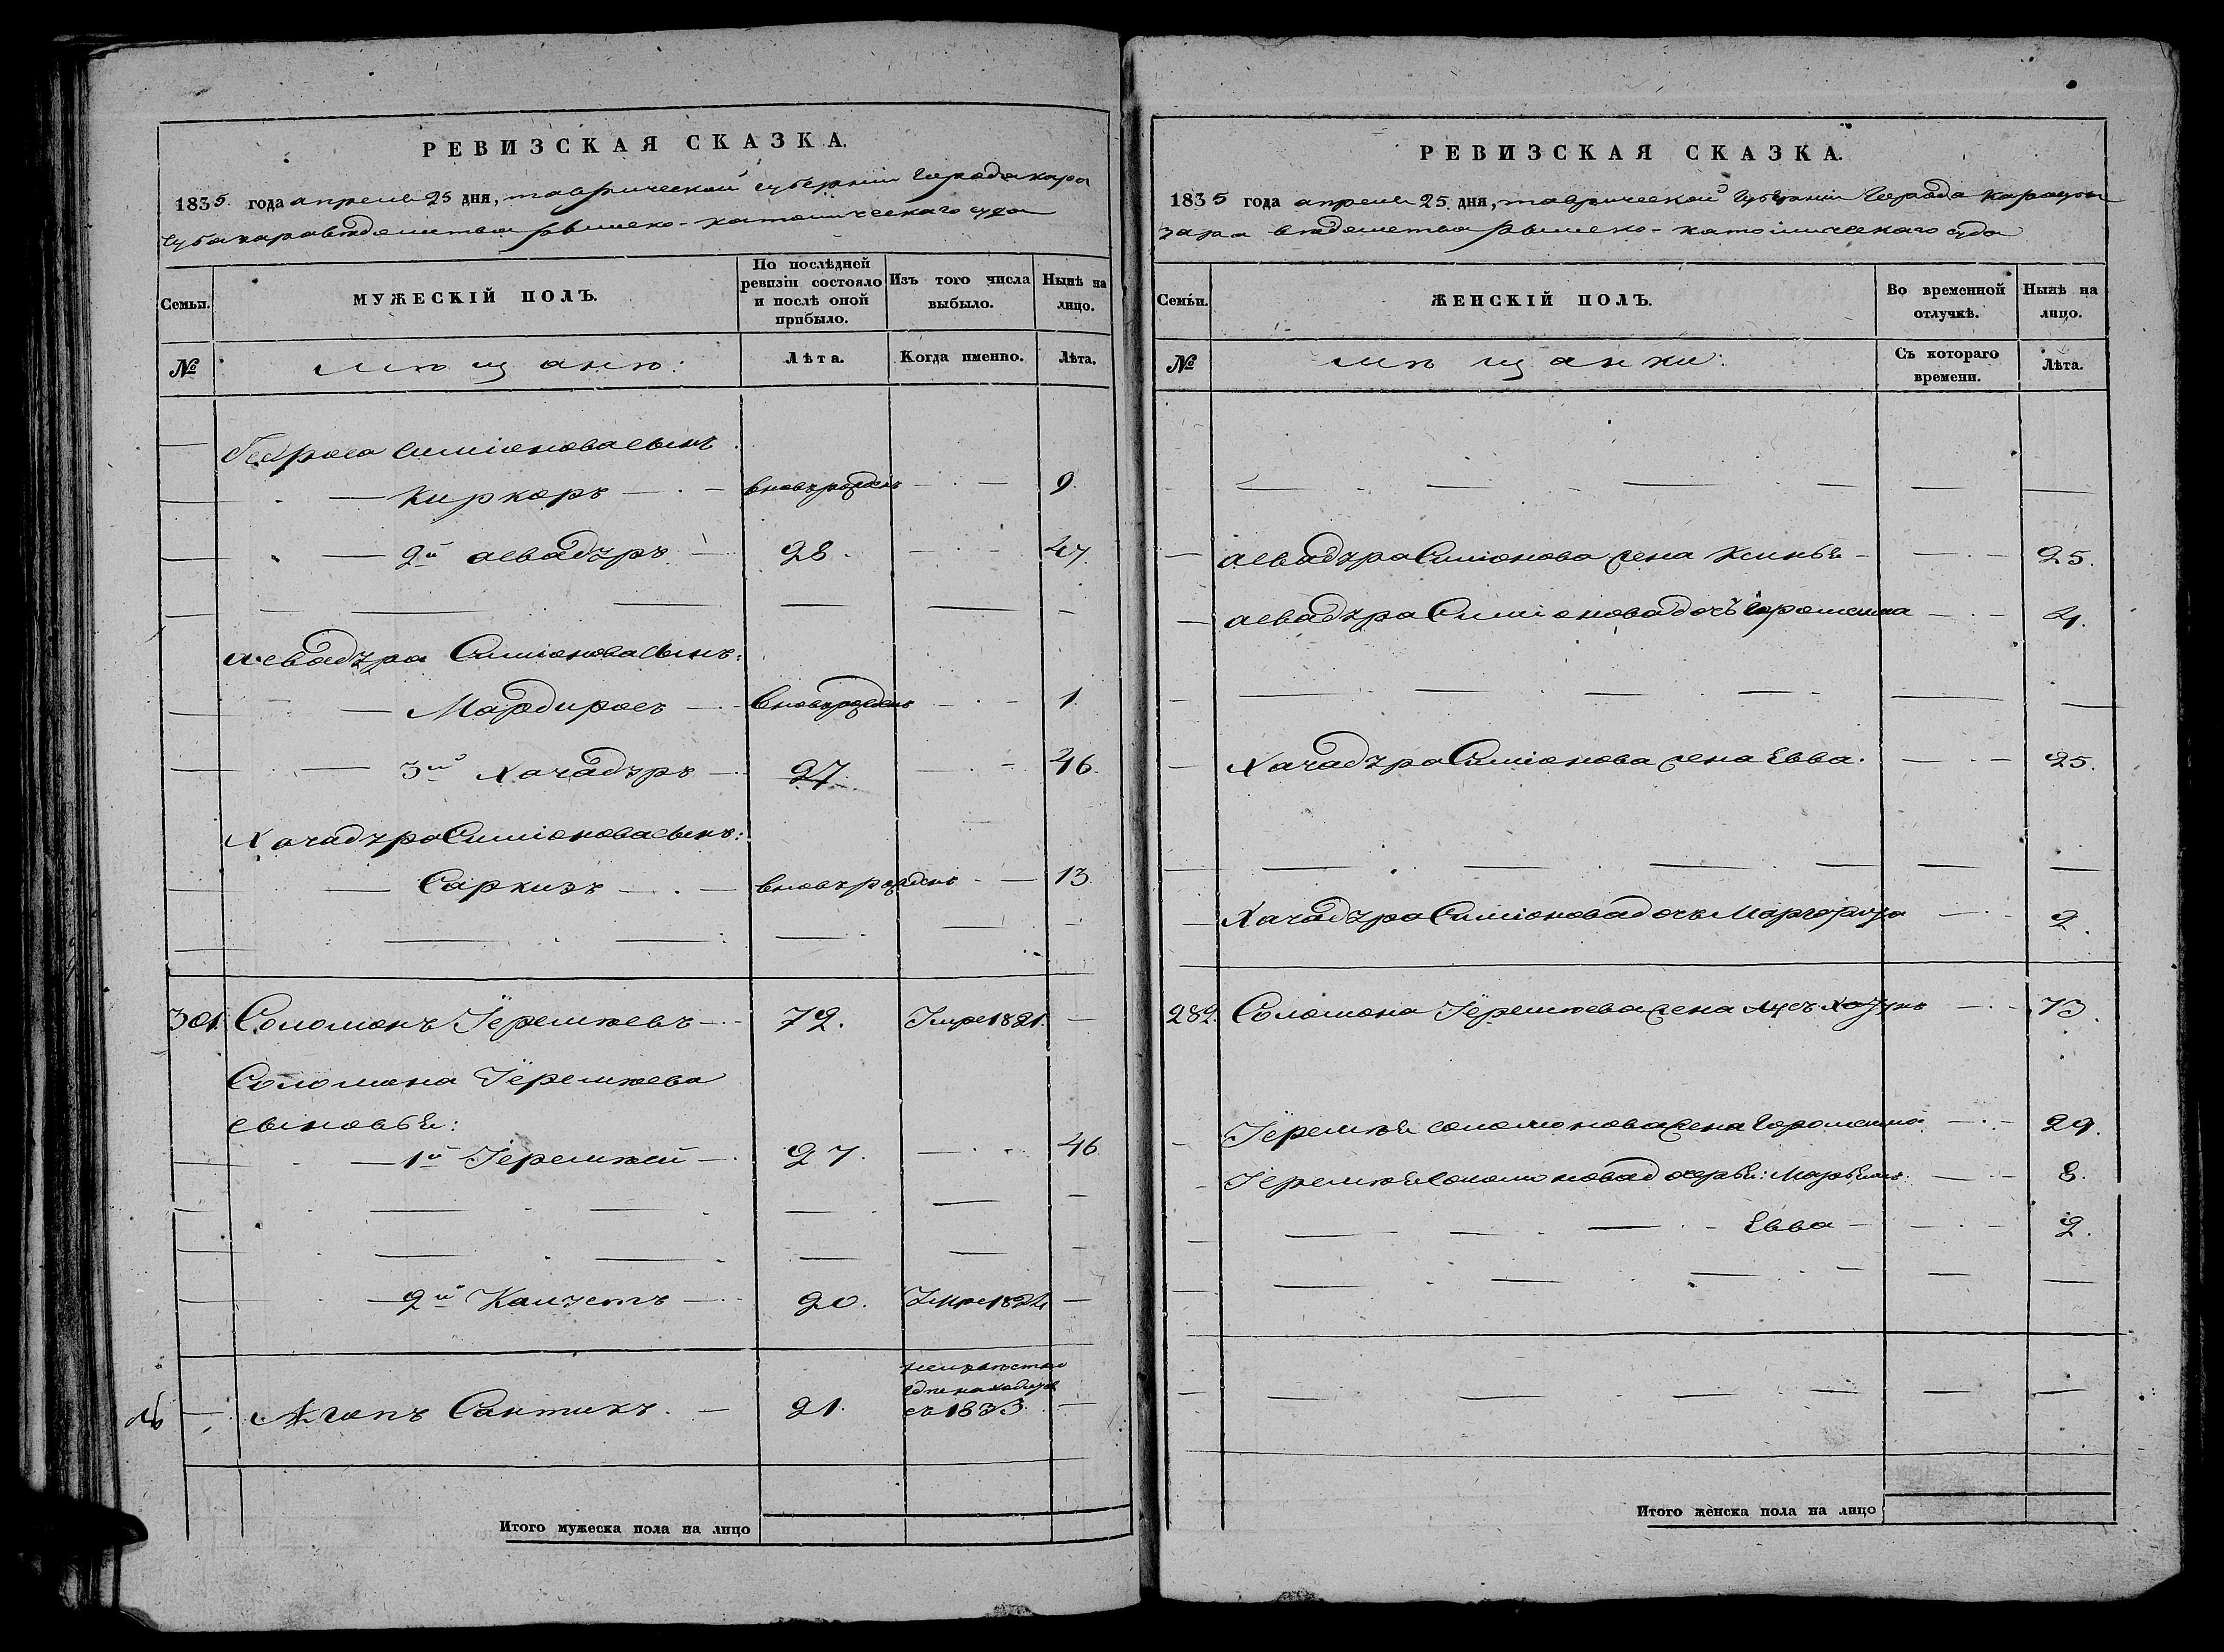 РЕВИЗСКАЯ СКАЗКА.
1835 года апреля 25 дня, таврической губернии города кара
субазара ведомства рымско-католическаго суда
Семьи.
МУЖЕСКІЙ ПОЛЪ.
По послѣдней ревизіи состояло и послѣ оной прибыло.
Изъ того числа выбыло.
Нынѣ на лицо.
№
мѣщанѣ:
Лѣта.
Когда именно.
Лѣта.
Петроса Симіонова сынъ
Киркоръ вновърожденъ 9
2й асвадъръ 28. 47.
асвадъра Симіонова сынъ:
Мардиросъ вновърожденъ 1
3й Хачадъръ 27. 46.
Хачадъра Симіонова сынъ:
Саркизъ вновърожденъ 13
301. Соломонъ Іеремѣевъ 72. Умре 1821.
Соломона Іеремѣева
сыновья:
1й Іеремѣй 27. 46
20. Умре 1824
Агопъ 21.
съ 1833
Итого мужеска пола на лицо
РЕВИЗСКАЯ СКАЗКА.
1835 года апреля 25 дня, таврической губерніи города карасу
базара ведомства рымско-католическаго суда
Семьи.
ЖЕНСКІЙ ПОЛЪ.
Во временной отлучкѣ.
Нынѣ на лицо.
№
мѣщанки:
Съ котораго времени.
Лѣта.
асвадъра Симіонова жена 25.
асвадъра Симіонова дочь 4.
Хачадъра Симіонова жена Евва. 25.
Хачадъра Симіонова дочь Маргарита 2.
282. Соломона Іеремѣева жена 73.
Іеремѣя соломонова жена 29.
Іеремѣя Соломонова дочерья: Марьямъ 8.
Евва 2.
Итого женска пола на лицо